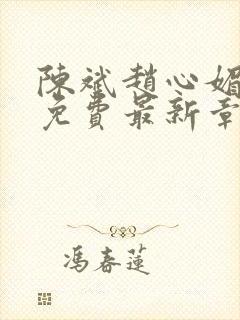 陳斌趙心媚
免費最新章
馮春蓮